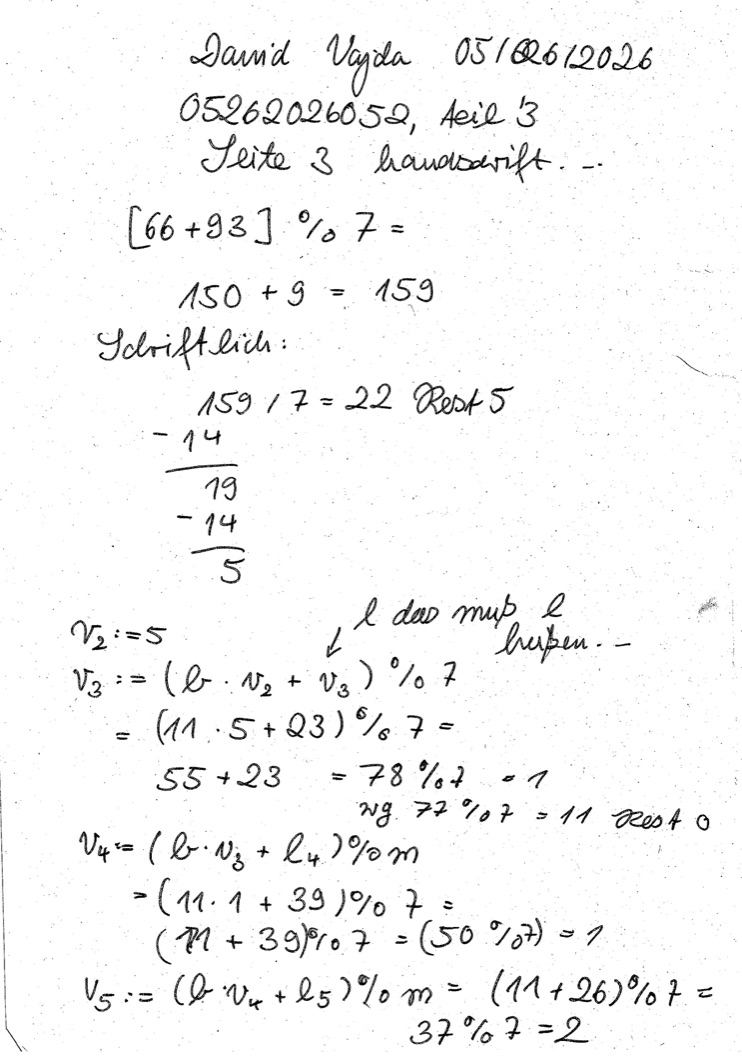 David Vajda 05/26/2026
05262026052, Teil 3
Seite 3 handschrift. --
[66+93] % 7 =
150 + 9 = 159
Schriftlich:
159 / 7 = 22 Rest 5
- 14
19
- 14
5
l das muß l
heißen. --
v₂ := 5
v₃ := (b · v₂ + v₃) % 7
= (11 · 5 + 23) % 7 =
55 + 23 = 78 % 7 = 1
wg 77 % 7 = 11 Rest 0
v₄ := (b · v₃ + l₄) % m
= (11 · 1 + 39) % 7 =
(11 + 39) % 7 = (50 % 7) = 1
v₅ := (b · v₄ + l₅) % m = (11 + 26) % 7 =
37 % 7 = 2